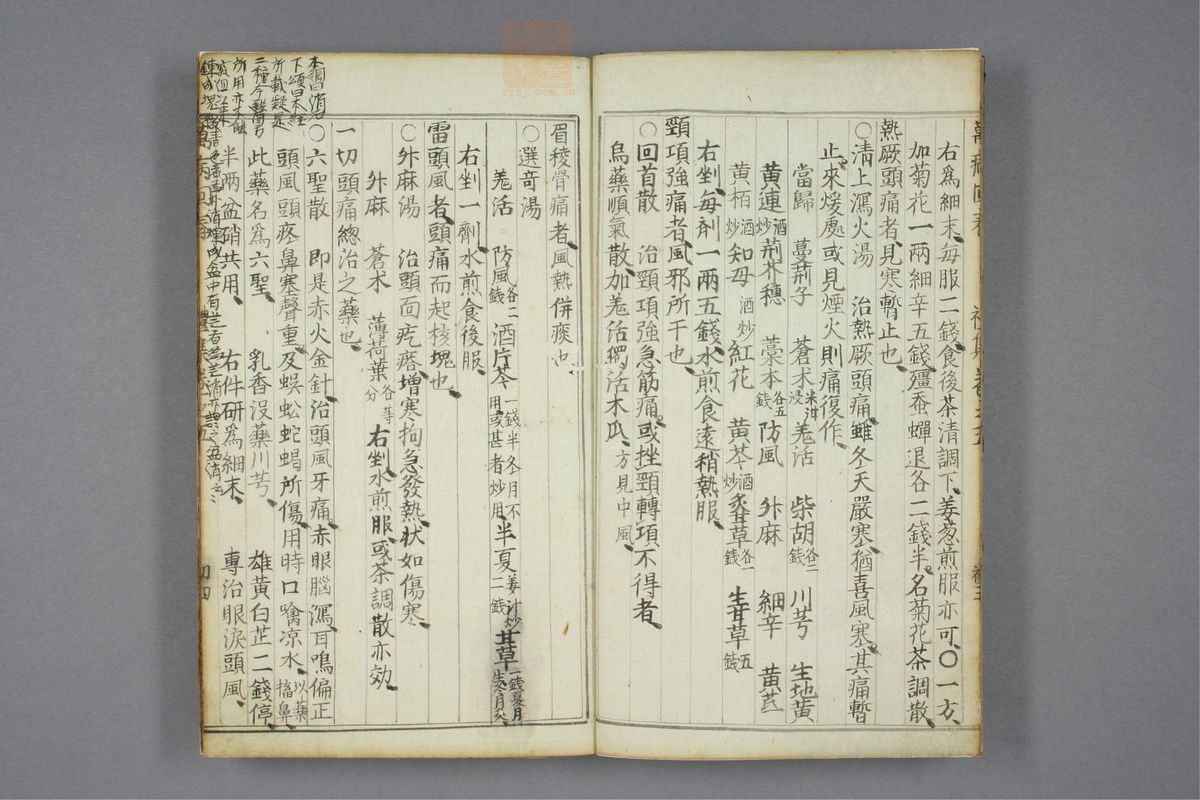 右爲細末每服二錢食後茶清調下姜葱煎服亦可〇一方
加菊花一兩細辛五錢殭蚕蟬退各二錢半名菊花茶調散
熱厥頭痛者見寒暫止也
〇清上瀉火湯　治熱厥頭痛雖冬天嚴寒猶喜風寒其痛暫
止來煖處或見煙火則痛復作
當歸　蔓荊子　蒼术米泔浸　羌活　柴胡各二錢　川芎　生地黄
黄連酒炒　荊芥穗　藁本各五錢　防風　升麻　細辛　黄芪
黄栢酒炒　知母酒炒　紅花　黄芩酒炒　炙甘草各一錢　生甘草五錢
右剉每剤一兩五錢水煎食遠稍熱服
頸項強痛者風邪所干也
〇回首散　治頸項強急筋痛或挫頸轉項不得者
烏藥順氣散加羌活獨活木瓜方見中風
眉稜骨痛者風熱併痰也
〇選竒湯
羌活　防風各二錢　酒片芩一錢半冬月不用或甚者炒用　半夏姜汁炒二錢　甘草一錢夏月生冬月炙
右剉一劑水煎食後服
雷頭風者頭痛而起核塊也
〇升麻湯　治頭面疙瘩增寒拘急發熱状如傷寒
升麻　蒼术　薄荷葉各等分　右剉水煎服或茶調散亦効
一切頭痛總治之藥也
〇六聖散　即是赤火金針治頭風牙痛赤眼腦瀉耳鳴偏正
頭風頭疼鼻塞聲重及蜈蚣蛇蝎所傷用時口噙凉水以藥㨨鼻
此藥名爲六聖　乳香没藥川芎　雄黄白芷二錢停
半兩盆硝共用　右件研爲細末　專治眼淚頭風
本謂消石
下頌曰本經
所載疑是
二種今醫方
所用亦不能